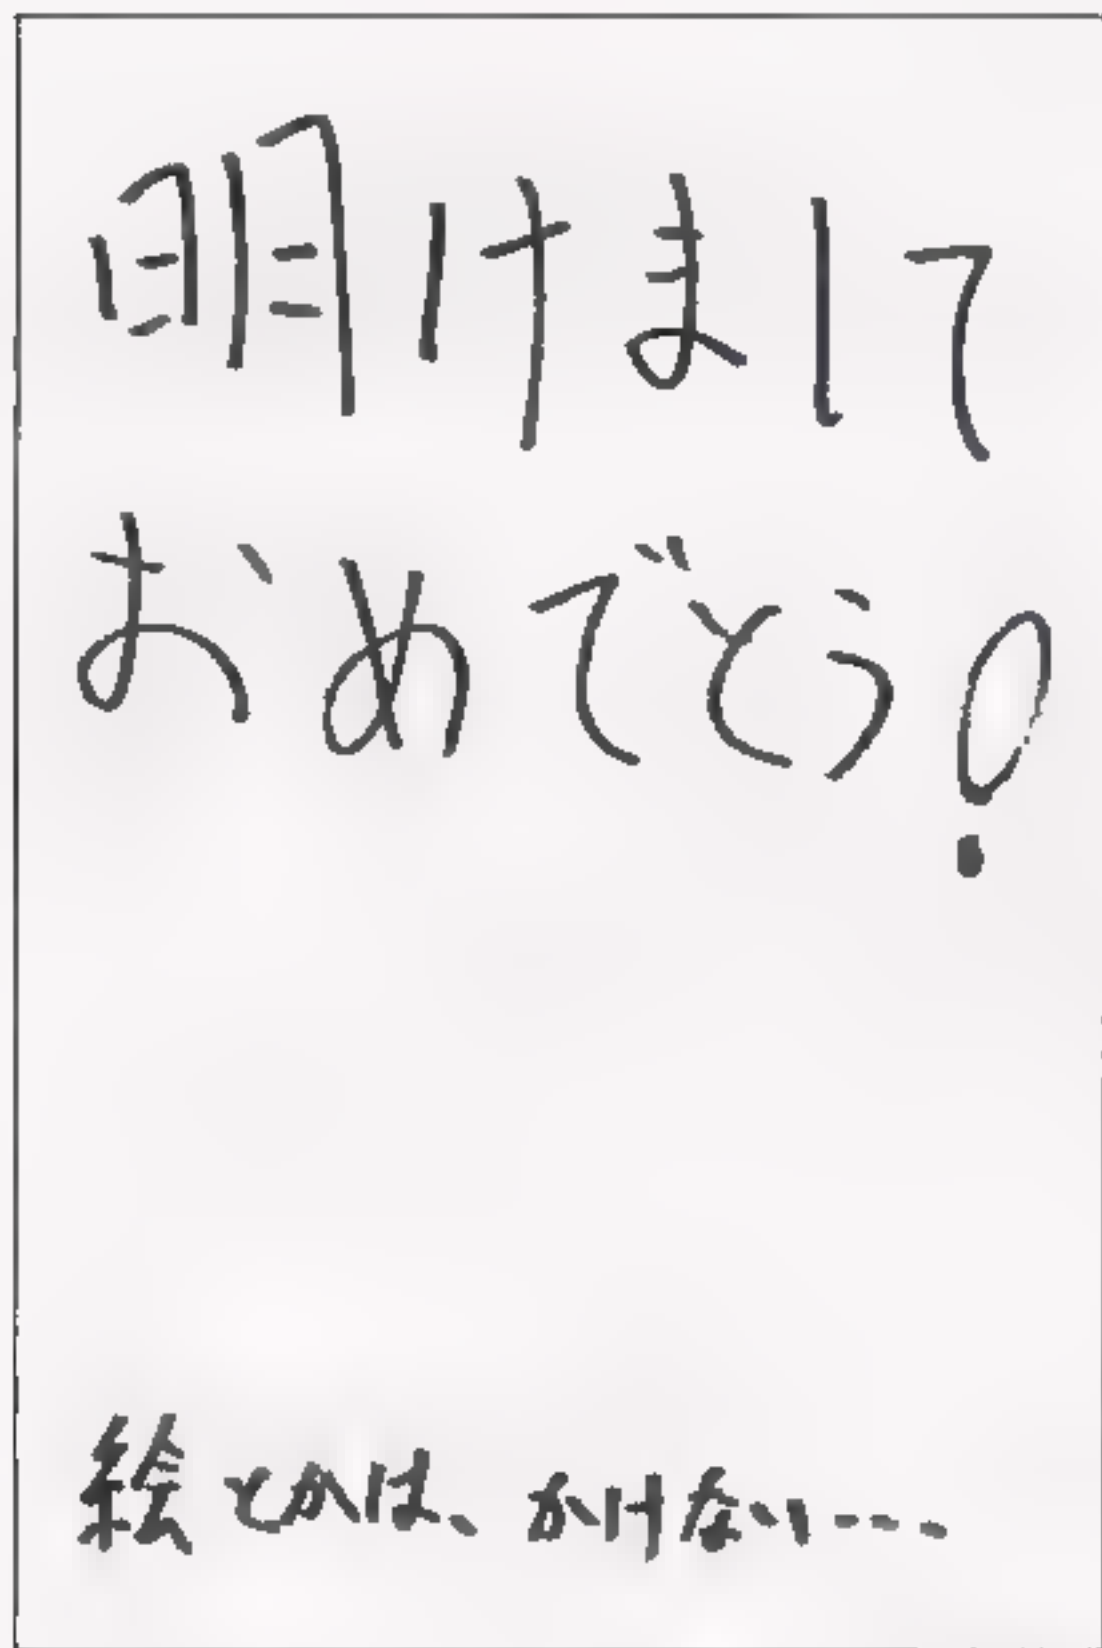 明けまして
おめでとう!
絵とかは、かけない...